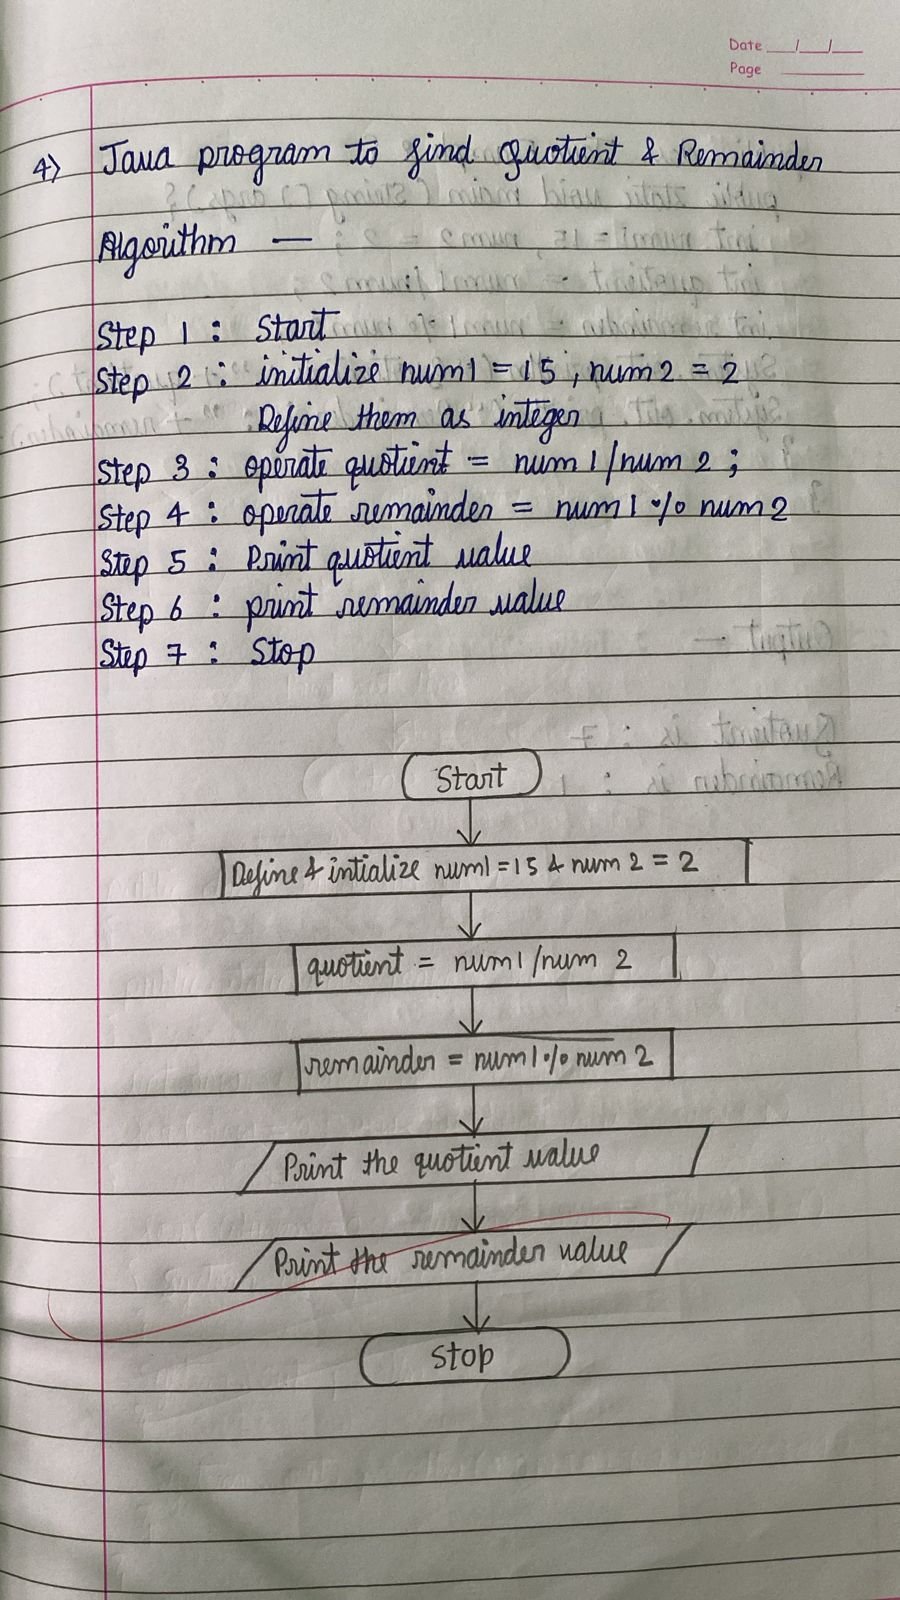 Date __/__/__
Page ____
4) Java program to find Quotient & Remainder
Algorithm —
Step 1 : Start
Step 2 : initialize num1 = 15 , num2 = 2
Define them as integer
Step 3 : operate quotient = num1/num2 ;
Step 4 : operate remainder = num1 % num2
Step 5 : Print quotient value
Step 6 : print remainder value
Step 7 : Stop
Start
Define & intialize num1 = 15 & num2 = 2
quotient = num1/num 2
remainder = num1 % num 2
Print the quotient value
Print the remainder value
Stop